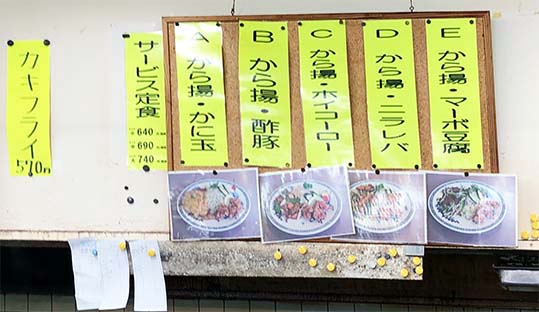 カキフライ
570円
サービス定食
640
690
740
A から揚・かに玉
B から揚・酢豚
C から揚・ホイコーロー
D から揚・ニラレバ
E から揚・マーボ豆腐